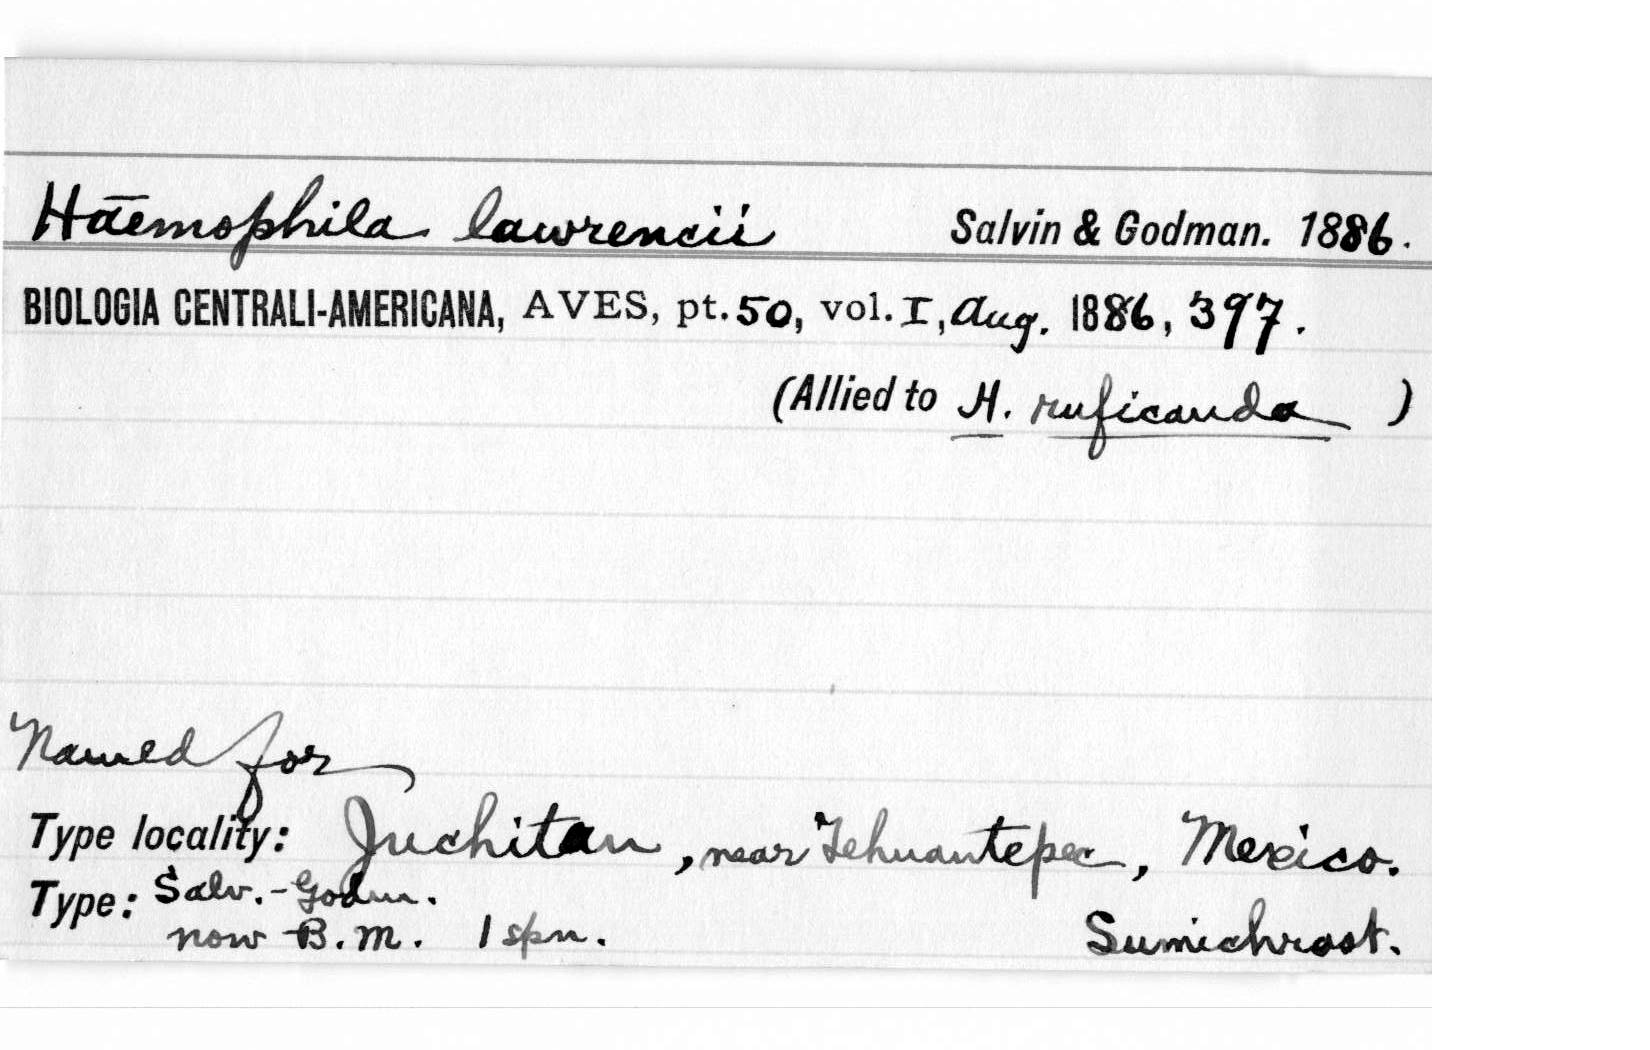 Haemophila lawrencii Salvin & Godman. 1886.
BIOLOGIA CENTRALI-AMERICANA, AVES, pt. 50, vol. I, Aug. 1886, 397.
(Allied to H. ruficauda )
Named for
Type locality: Juchitan, near Tehuantepec, Mexico.
Type: Salv.-Godm.
now B.M. 1 spn. Sumichrast.